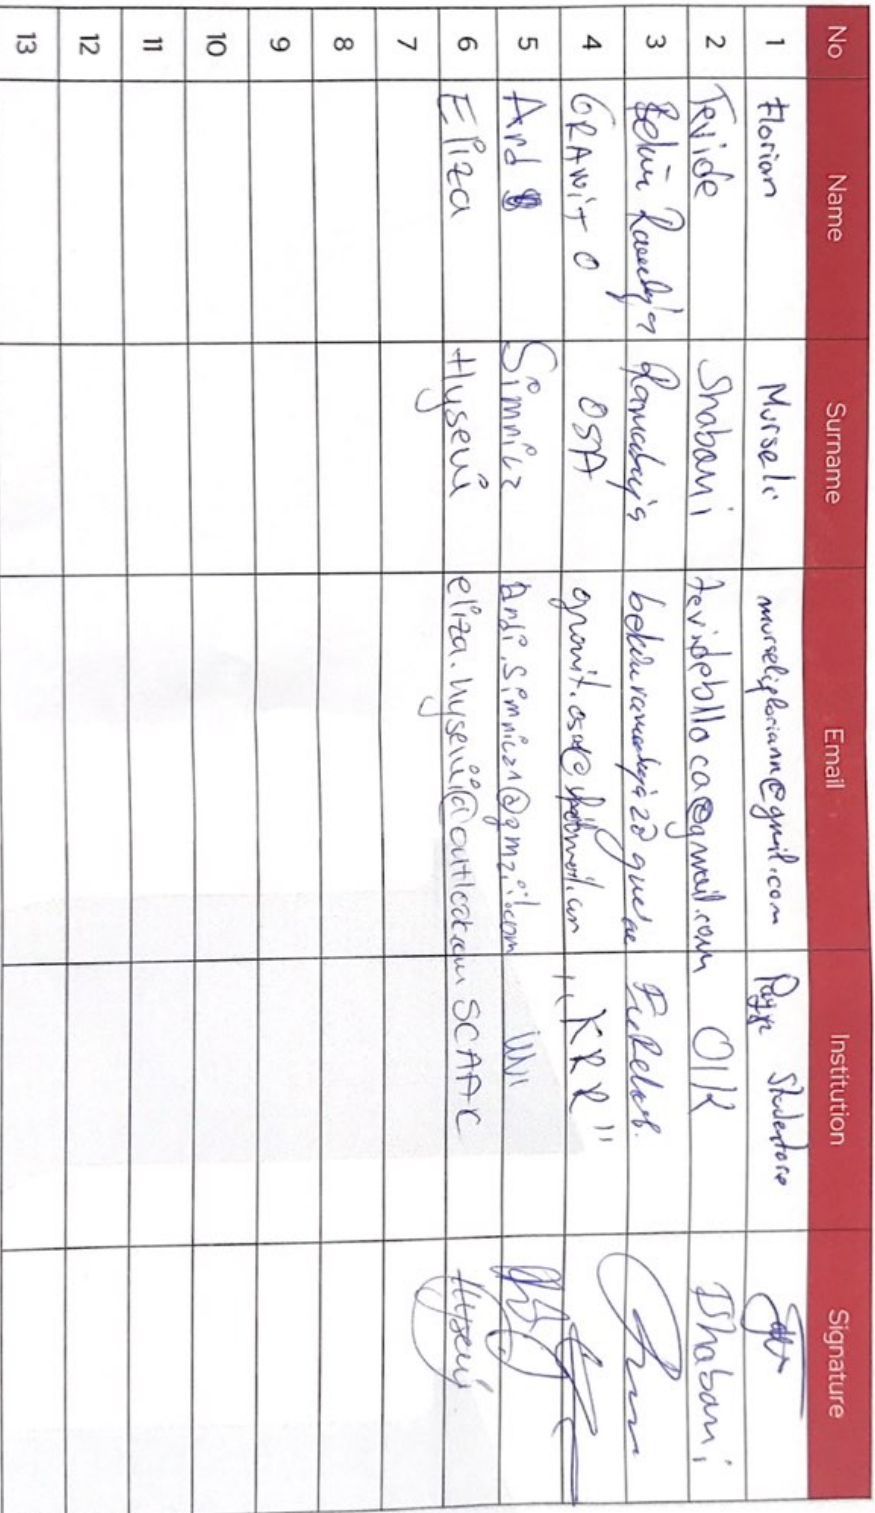 No Name Surname Email Institution Signature
1 Florian Murseli murselifloriann@gmail.com Studentore
2 Tevide Shabani tevidebllaca@gmail.com OIK TShabani
3 Bekim Ramadaja Ramadaja
4 GRANIT O OSA granit.osa@hotmail.com "KRR"
5 Ard Simnica Ardi.Simnica1@gmail.com
6 Eliza Hyseni eliza.hyseni@outlook.com SCAAK Hyseni
7
8
9
10
11
12
13